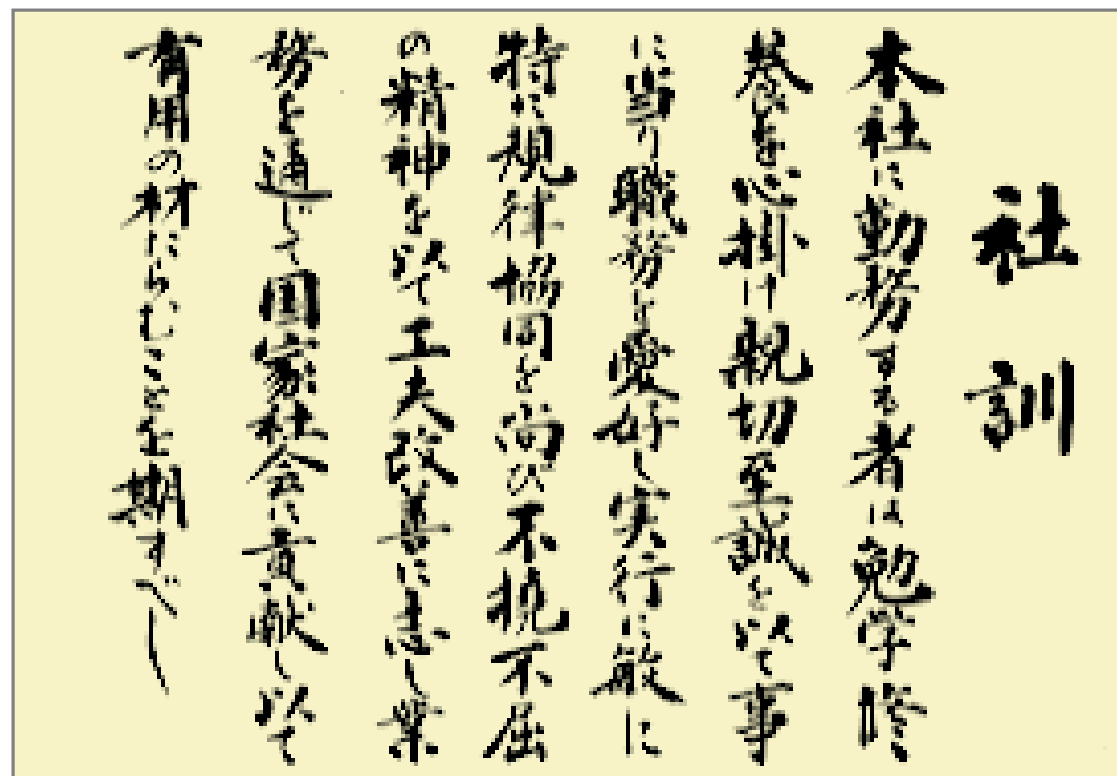 社訓
本社に勤務する者は勉学修
養を心掛け親切至誠を以て事
に当り職務を愛好し実行に敏に
特に規律協同を尚び不撓不屈
の精神を以て工夫改善に志し業
務を通じて国家社会に貢献し以て
有用の材たらむことを期すべし